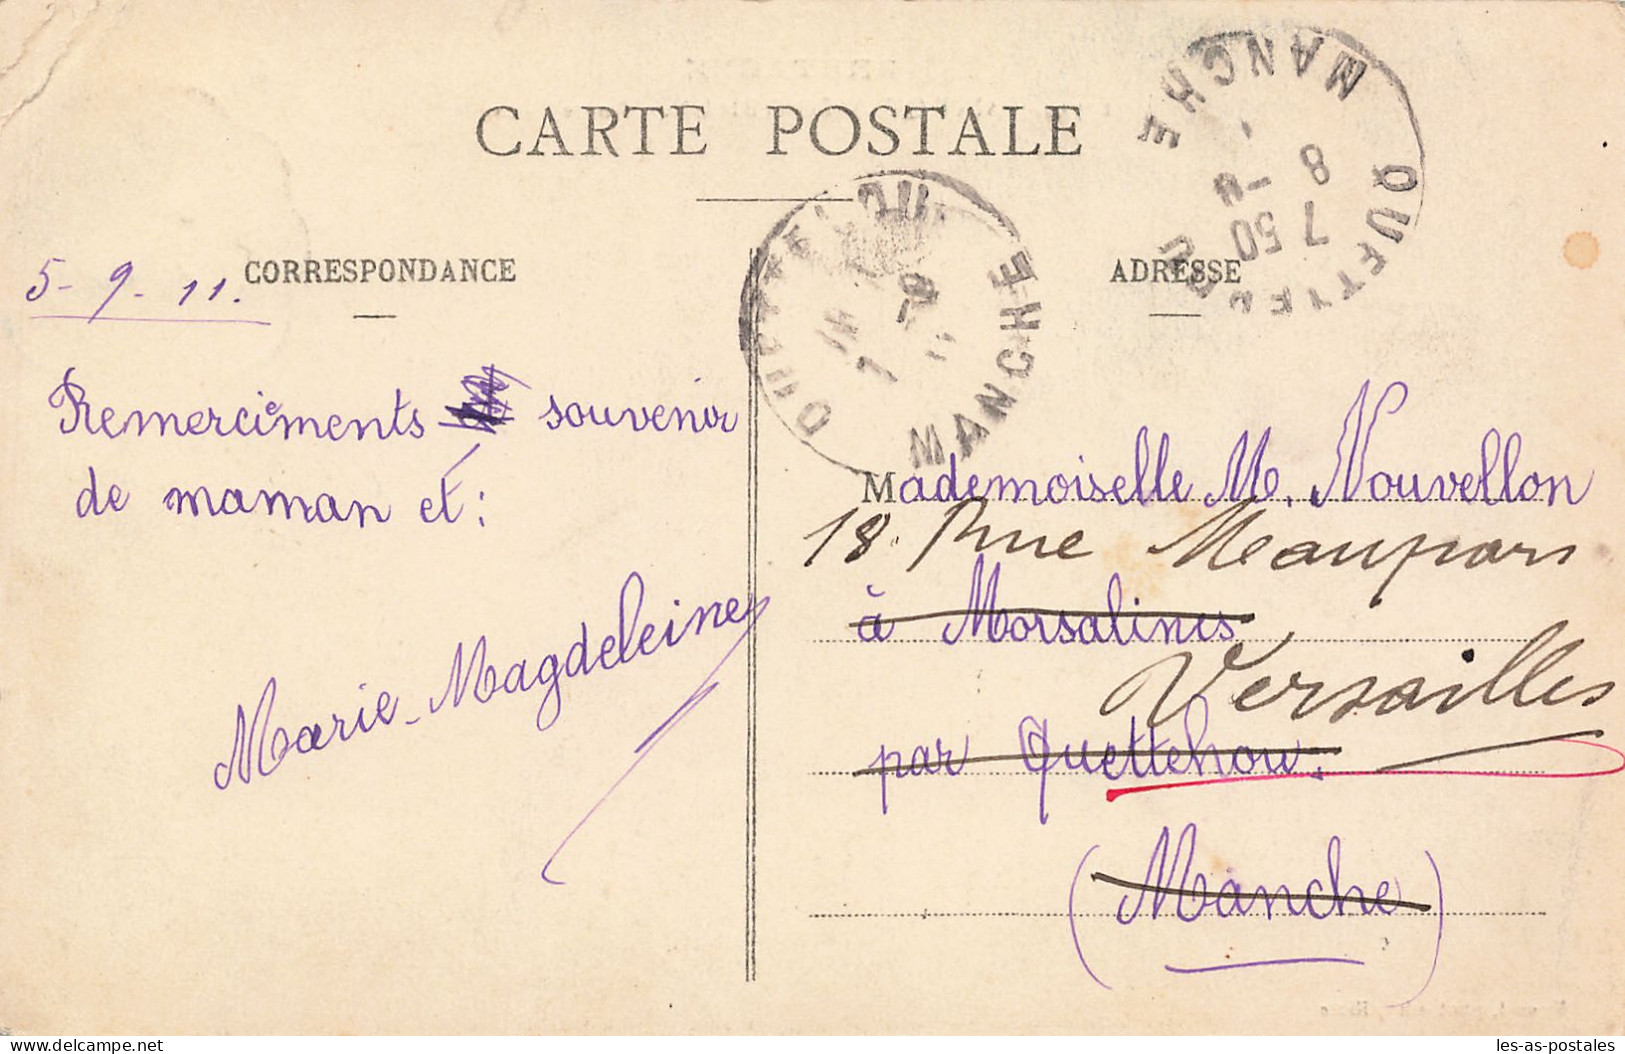 CARTE POSTALE
CORRESPONDANCE
5-9-11.
Remerciements souvenir
de maman et:
Marie-Magdeleine
QUETTEHOU
MANCHE
ADRESSE
QUETTEHOU
MANCHE
7 50
8 -9
Mademoiselle M. Nouvellon
18. Rue
à Morsalines
Versailles
par Quettehou.
(Manche)
delcampe.net
les-as-postales